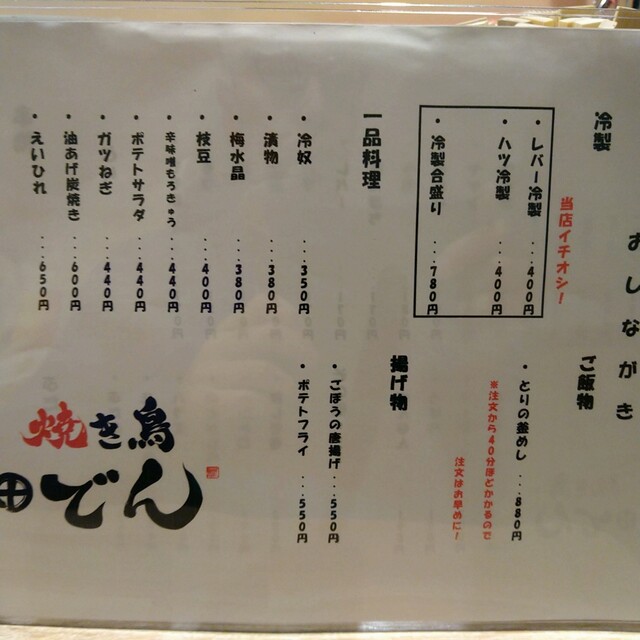 おしながき
冷製
当店イチオシ!
・レバー冷製 ...400円
・ハツ冷製 ...400円
・冷製合盛り ...780円
一品料理
・冷奴 ...350円
・漬物 ...380円
・梅水晶 ...380円
・枝豆 ...400円
・辛味噌もろきゅう ...440円
・ポテトサラダ ...440円
・ガツねぎ ...440円
・油あげ炭焼き ...600円
・えいひれ ...650円
ご飯物
・とりの釜めし ...880円
※注文から40分ほどかかるので
注文はお早めに!
揚げ物
・ごぼうの唐揚げ ...550円
・ポテトフライ ...550円
焼き鳥
でん